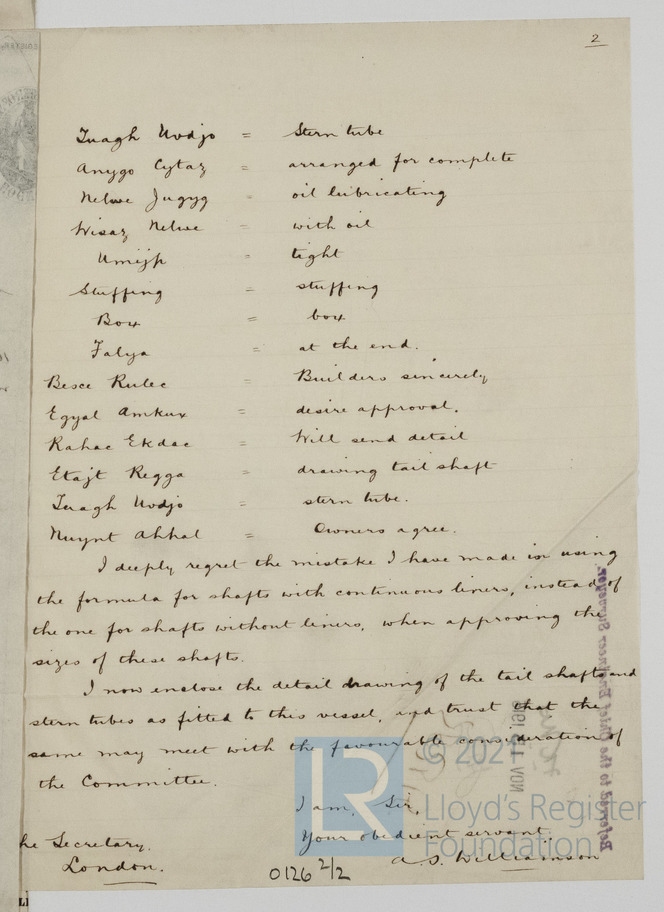 2
Tuagh Uvdjo = Stern tube
Anygo Cytaz = arranged for complete
Nelwe Jugyg = oil lubricating
Wisaz Nelwe = with oil
Umijp = tight
Stuffing = stuffing
Box = box
Falya = at the end.
Besce Rulec = Builders sincerely
Egyal Amkux = desire approval.
Rahac Ekdac = Will send detail
Etajt Regga = drawing tail shaft
Tuagh Uvdjo = stern tube.
Nuynt Ahhal = Owners agree.
I deeply regret the mistake I have made in using
the formula for shafts with continuous liners, instead of
the one for shafts without liners, when approving the
sizes of these shafts.
I now enclose the detail drawing of the tail shafts and
stern tubes as fitted to this vessel, and trust that the
same may meet with the favourable consideration of
the Committee.
I am, Sir,
Your obedient servant.
A. S. Williamson
he Secretary.
London.
0126 2/2
© 2021
LR
Lloyd's Register
Foundation
Referred to the Chief Engineer Surveyor